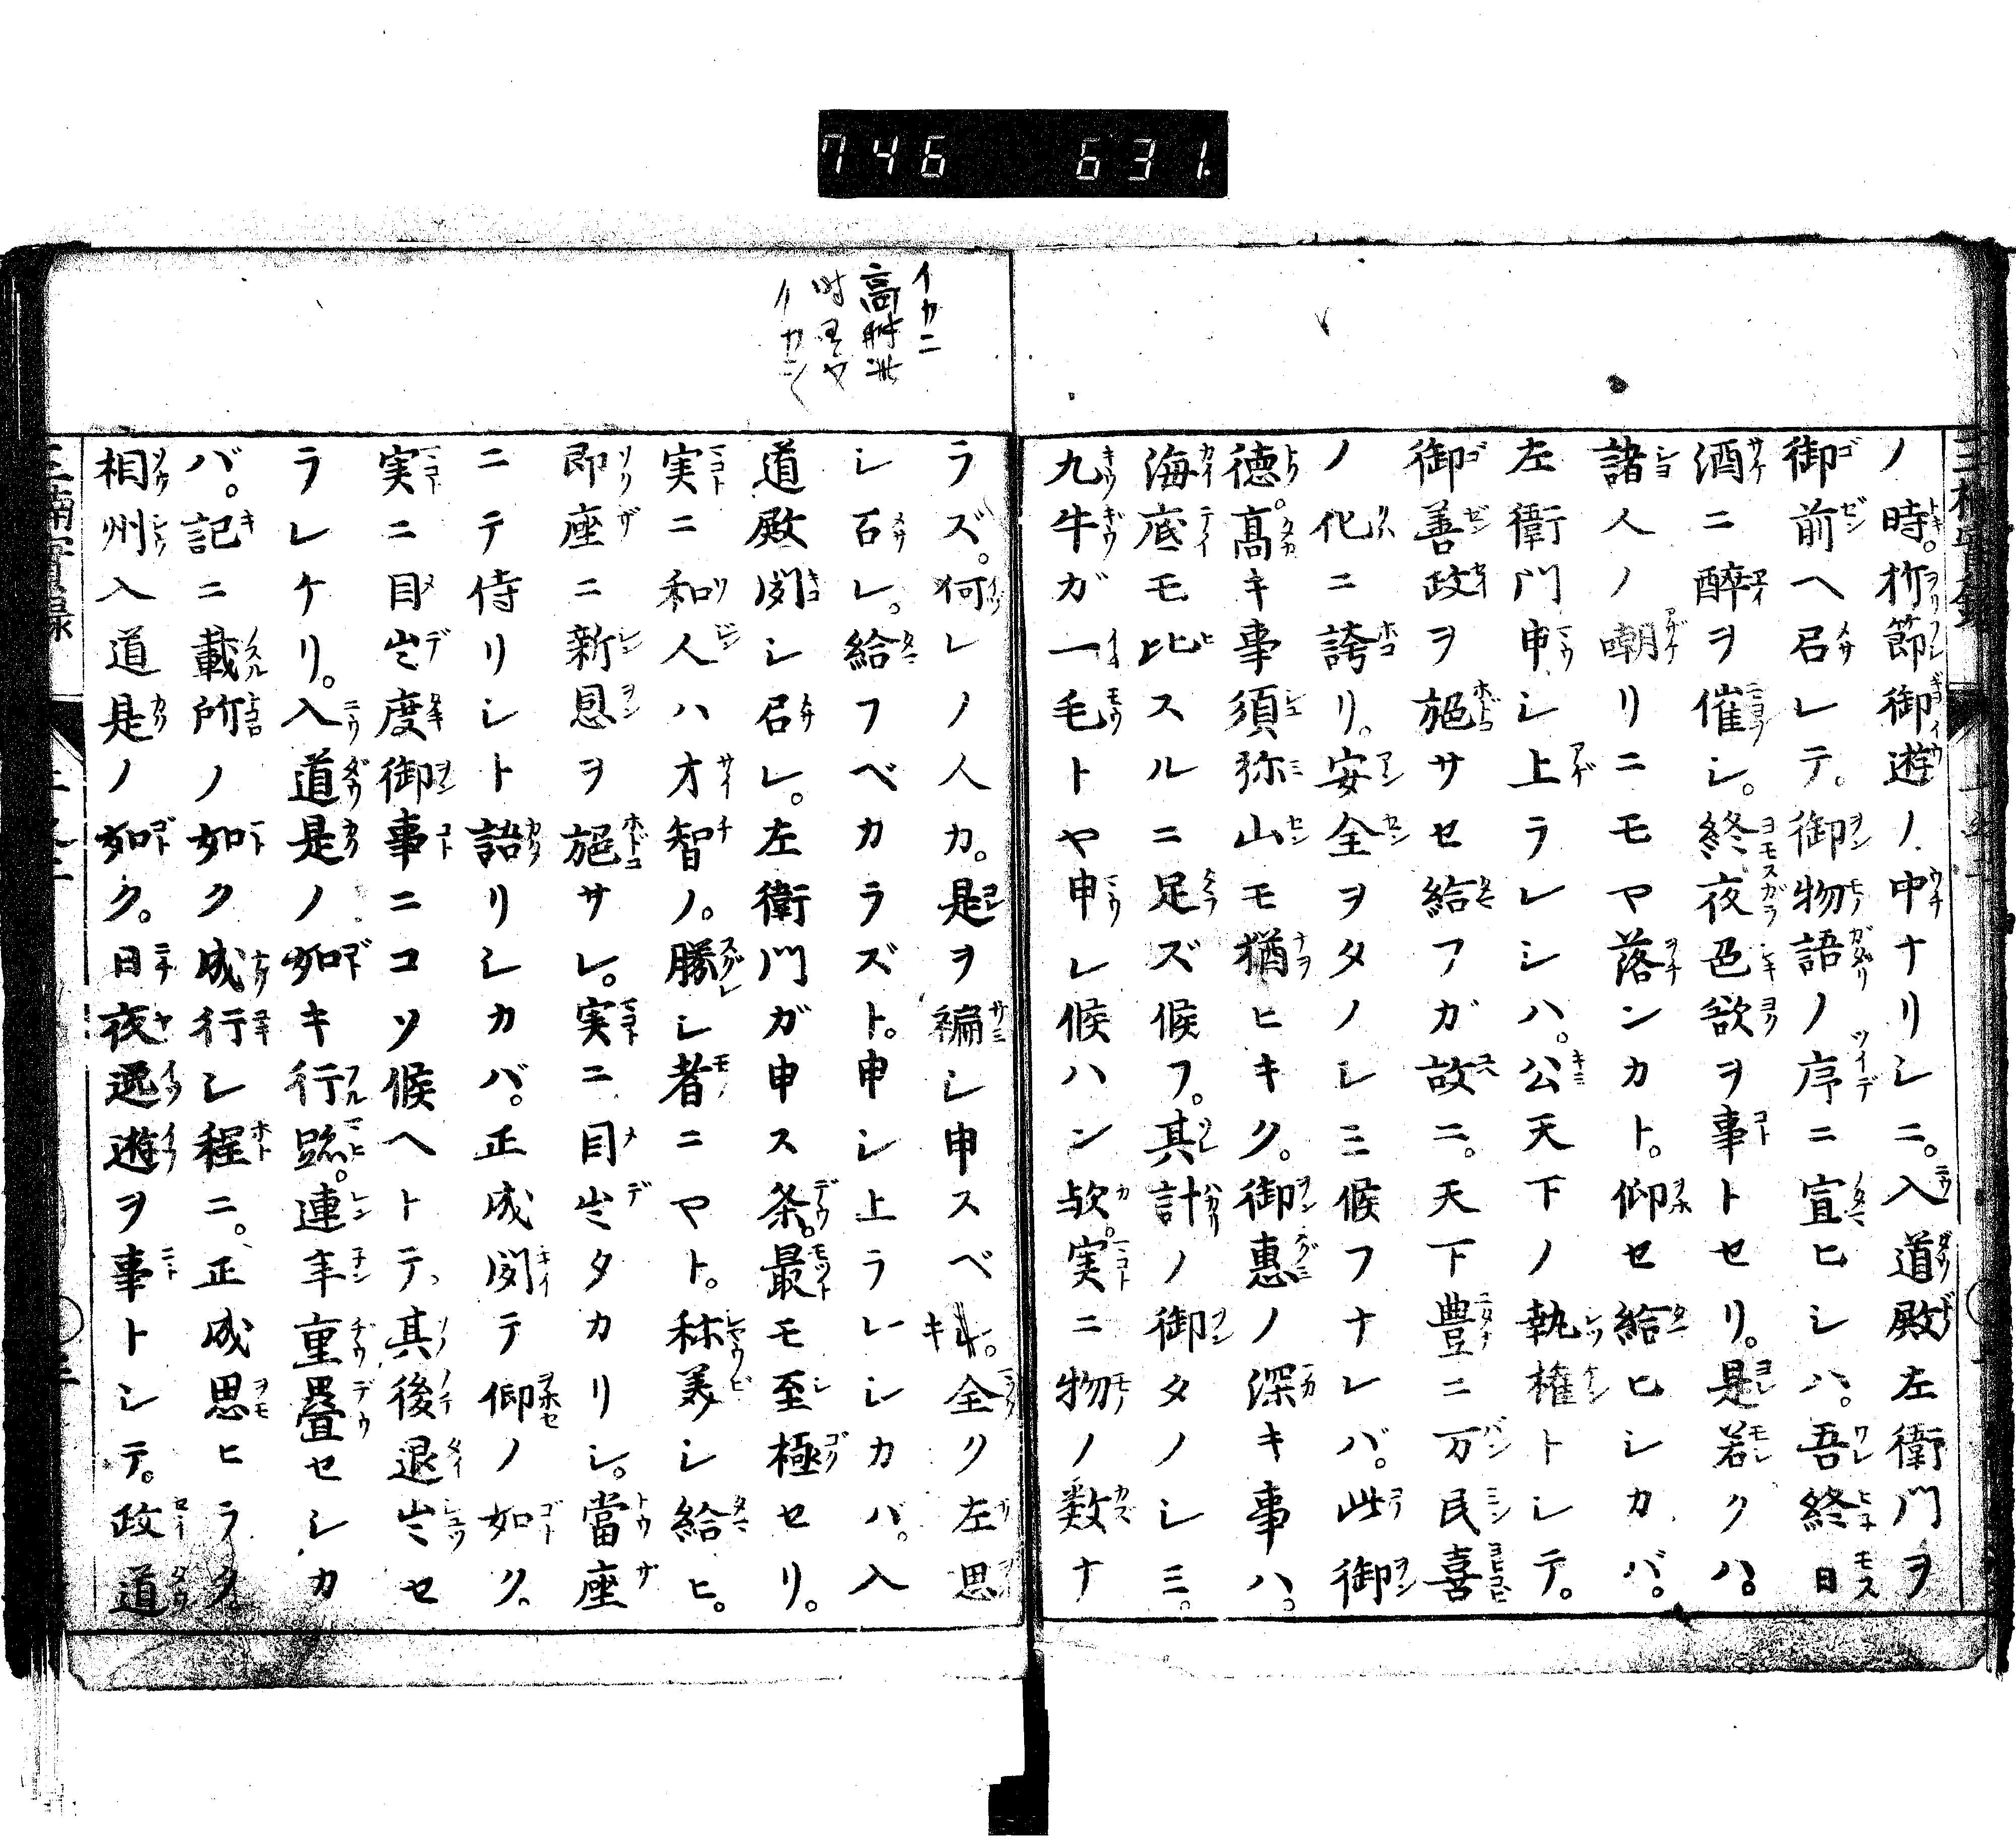 746 631.
ノ時。折節御遊ノ中ナリシニ。入道殿左衛門ヲ
御前ヘ召レテ。御物語ノ序ニ宣ヒシハ。吾終日
酒ニ酔ヲ催シ。終夜色欲ヲ事トセリ。是若クハ。
諸人ノ嘲リニモヤ落ンカト。仰セ給ヒシカバ。
左衛門申シ上ラレシハ。公天下ノ執権トシテ。
御善政ヲ施サセ給フガ故ニ。天下豊ニ万民喜
ノ化ニ誇リ。安全ヲタノシミ候フナレバ。此御
徳。高キ事須弥山モ猶ヒキク。御恵ノ深キ事ハ。
海底モ比スルニ足ズ候フ。其計ノ御タノシミ。
九牛ガ一毛トヤ申シ候ハン欤。実ニ物ノ数ナ
イカニ
高時
時
イカニ
ラズ。何レノ人カ。是ヲ褊シ申スベキ。全ク左思
シ召レ。給フベカラズト。申シ上ラレシカバ。入
道殿聞シ召レ。左衛門ガ申ス条。最モ至極セリ。
実ニ和人ハ才智ノ。勝レシ者ニヤト。称美シ給ヒ。
即座ニ新恩ヲ施サレ。実ニ目出タカリシ。當座
ニテ侍リシト語リシカバ。正成聞テ仰ノ如ク。
実ニ目出度御事ニコソ候ヘトテ。其後退出セ
ラレケリ。入道是ノ如キ行跡。連年重畳セシカ
バ。記ニ載所ノ如ク成行シ程ニ。正成思ヒラク。
相州入道是ノ如ク。日夜遊ヲ事トシテ。政道